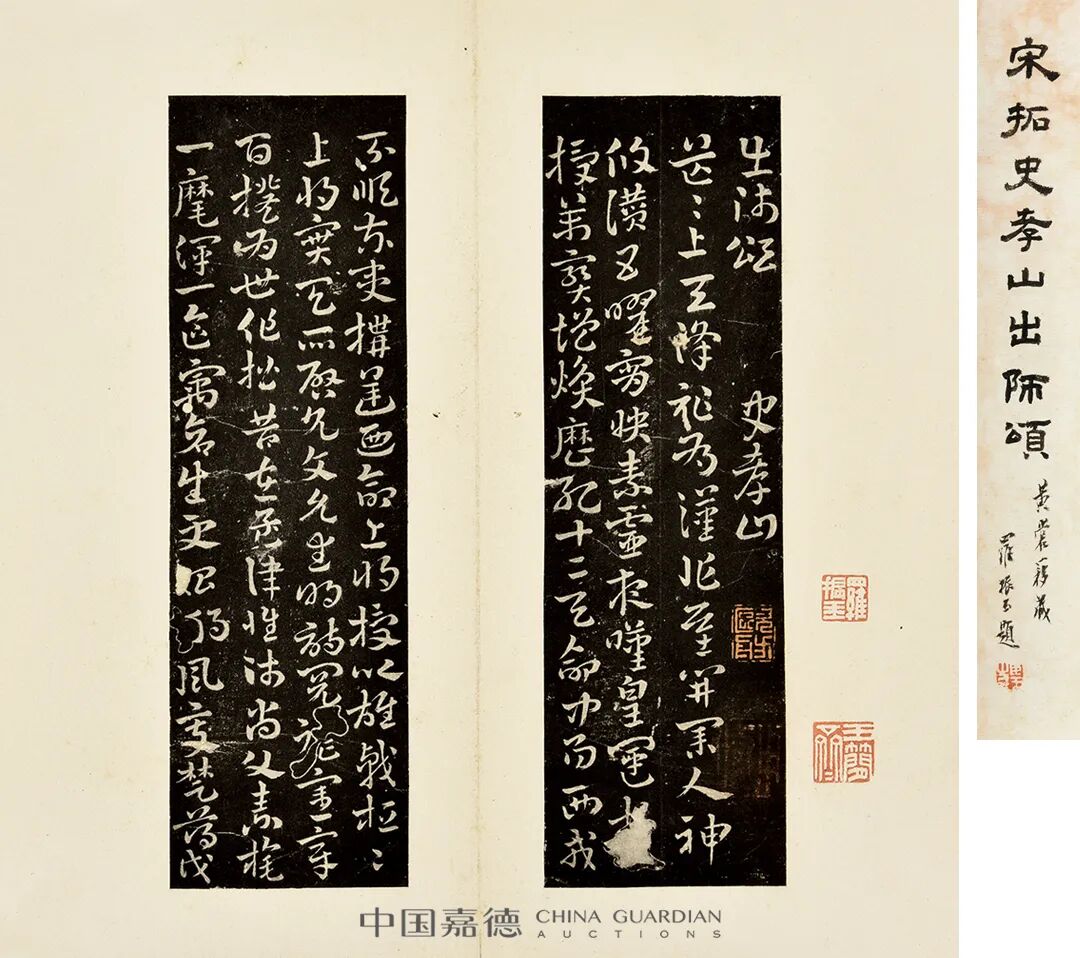 宋拓史孝山出師頌
舊藏
羅振玉題
羅振玉
出師頌 史孝山
茫〻上天降祚為漢作基開業人神
攸讚五曜霄映素靈夜嘆皇運
授萬寶增煥歷紀十二天命中易西戎
不順東夷搆逆迺命上將授以雄戟桓〻
上將實天所啟允文允武明詩閱禮憲章
百揆為世作楷昔在孟津惟師尚父素旄
一麾渾一區寓蒼生更始朔風變楚薄伐
中国嘉德 CHINA GUARDIAN
AUCTIONS